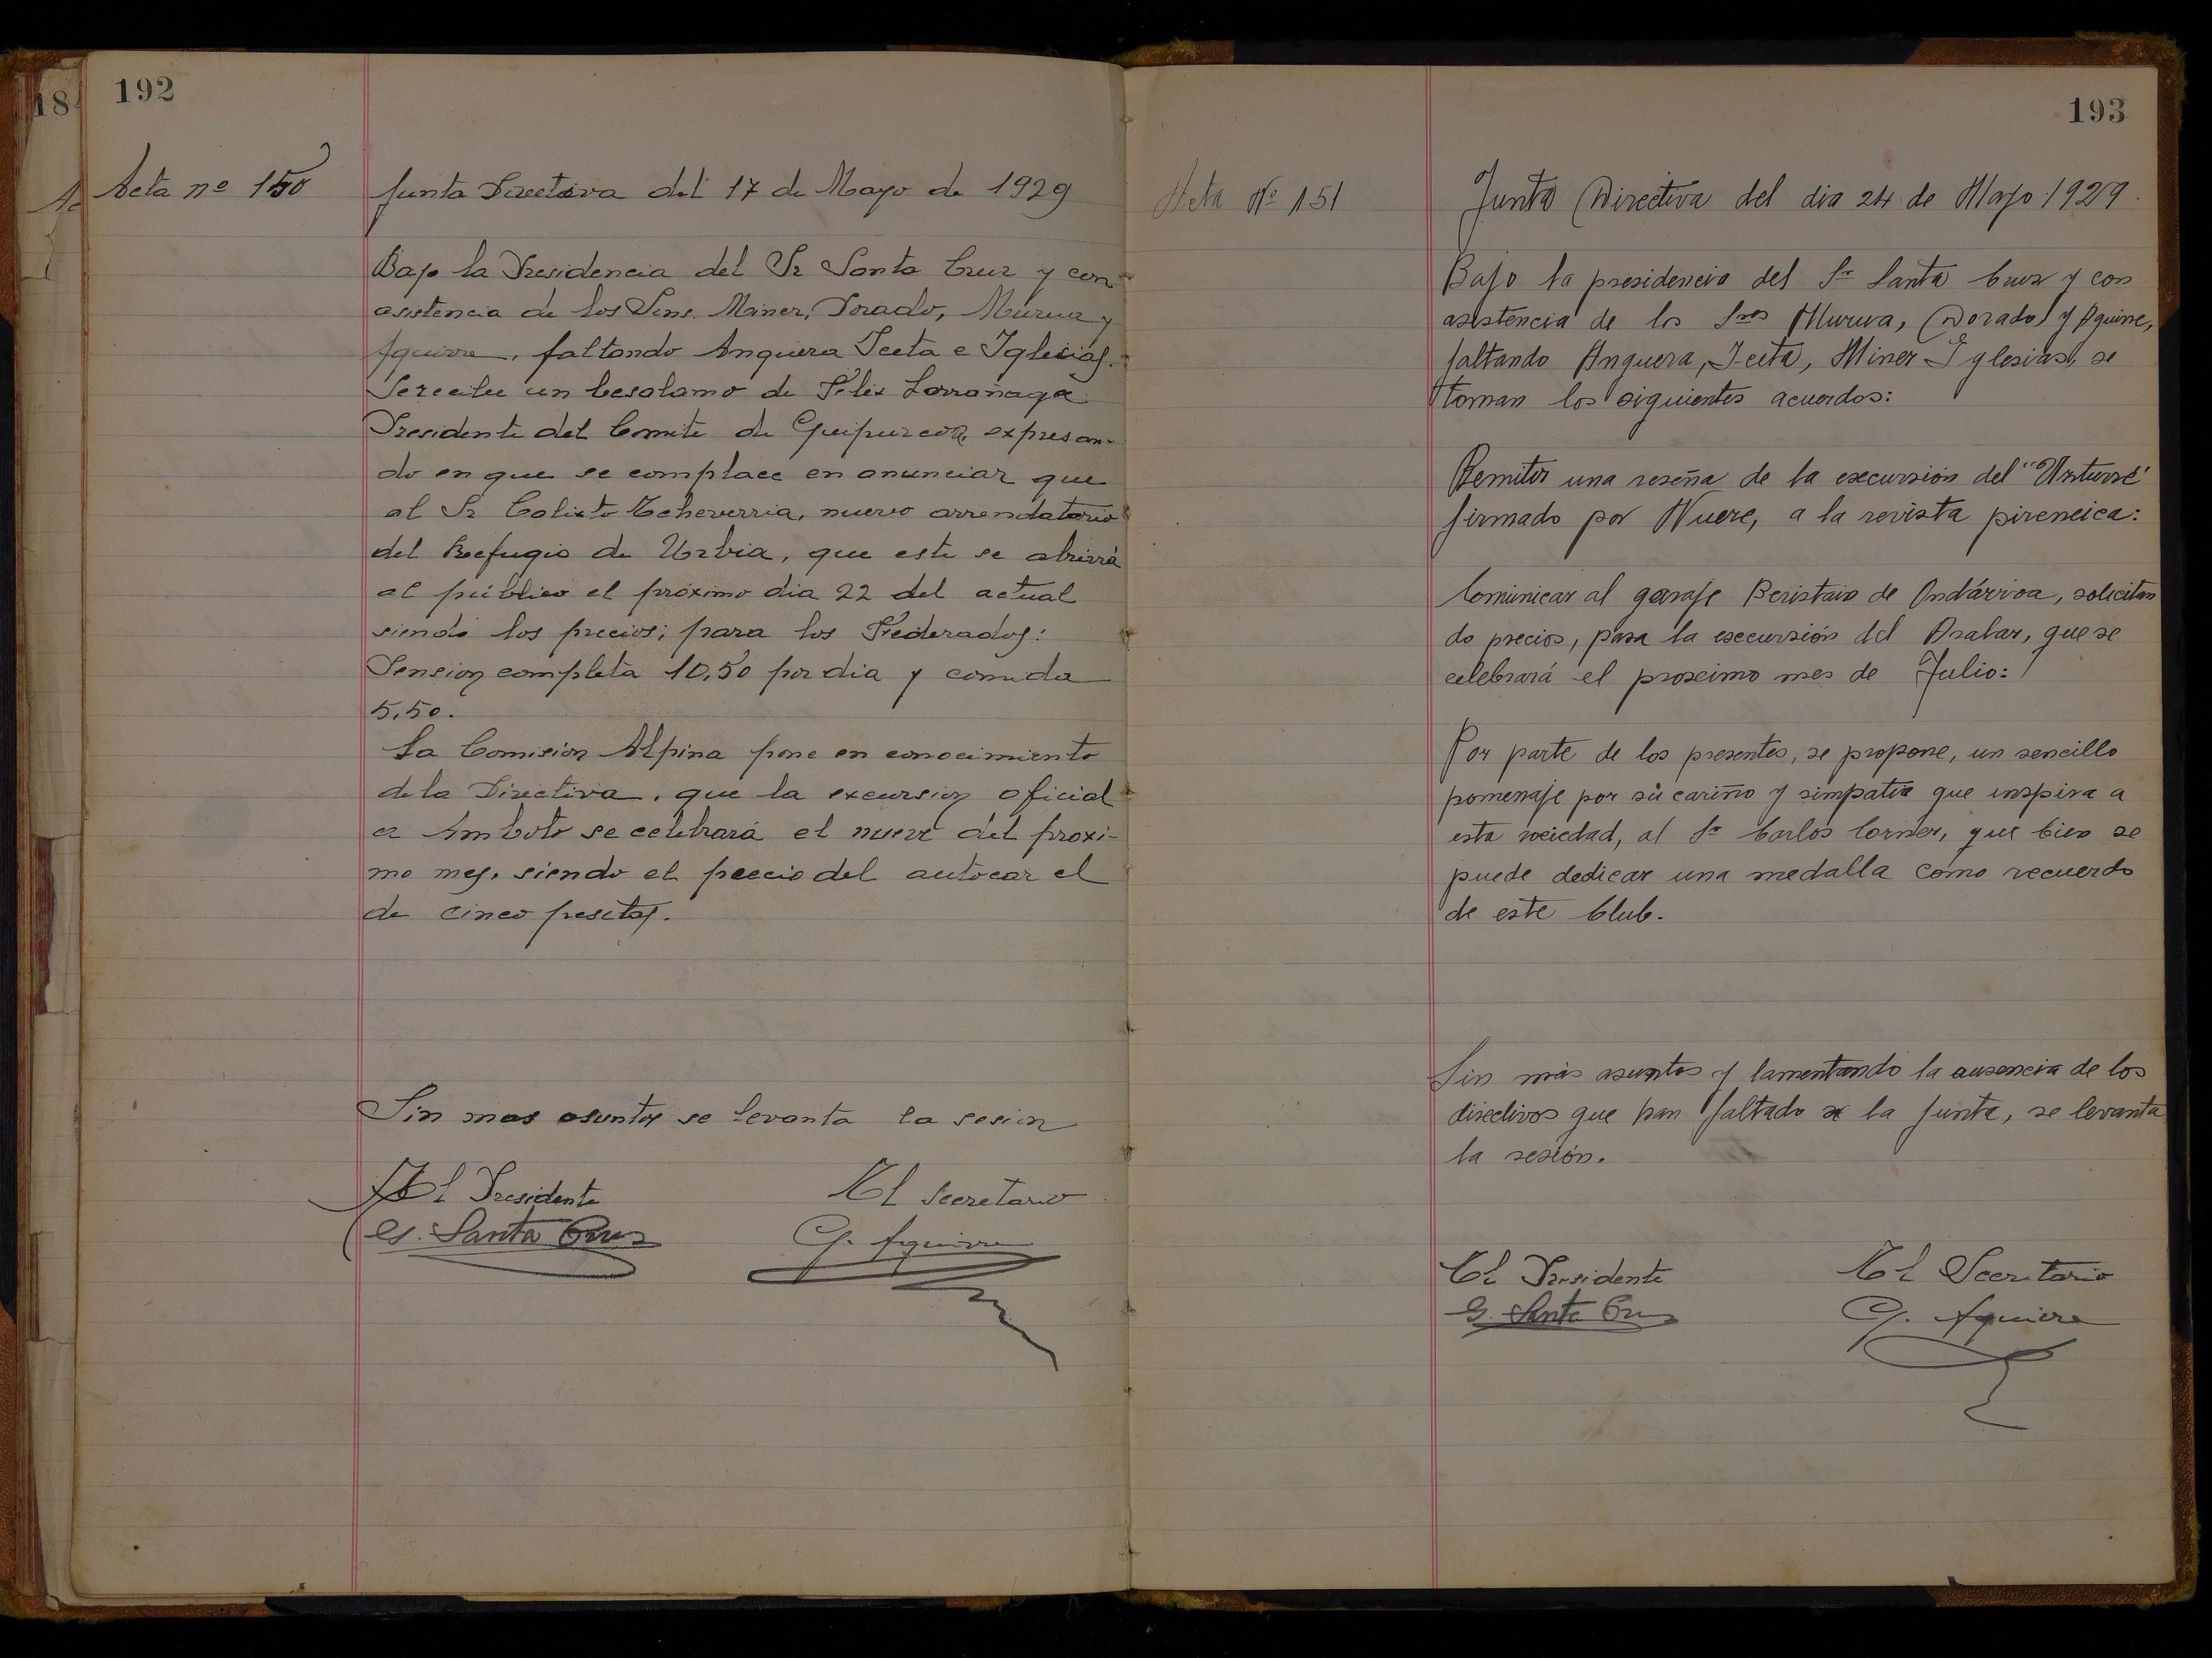 192
Acta nº 150
Junta Directiva del 17 de Mayo de 1929
Bajo la Presidencia del Sr Santa Cruz y con
asistencia de los Sres. Miner, Dorado, Murua y
Aguirre, faltando Anguera Iceta e Iglesias.
Se recibe un besalamo de Felix Larrañaga
Presidente del Comite de Guipuzcoa, expresan-
do en que se complace en anunciar que
al Sr Calixto Echeverria, nuevo arrendatario
del Refugio de Urbia, que este se abrirá
al público el próximo dia 22 del actual
siendo los precios; para los Federados:
Pension completa 10,50 por dia y comida
5,50.
La Comision Alpina pone en conocimiento
de la Directiva, que la excursion oficial
a Amboto se celebrará el nueve del proxi-
mo mes, siendo el precio del autocar el
de cinco pesetas.
Sin mas asuntos se levanta la sesion
El Presidente El Secretario
G. Santa Cruz G. Aguirre
193
Acta Nº 151
Junta Directiva del dia 24 de Mayo 1929.
Bajo la presidencia del Sr Santa Cruz y con
asistencia de los Sres Murua, Dorado y Aguirre,
faltando Anguera, Iceta, Miner Iglesias, se
toman los siguientes acuerdos:
Remitir una reseña de la escursión del
firmado por a la revista pireneica:
Comunicar al garaje Beristain de Ondárroa, solicitan
do precios, para la escursión del Aralar, que se
celebrará el proscimo mes de Julio:
Por parte de los presentes, se propone, un sencillo
homenaje por sú cariño y simpatia que inspira a
esta sociedad, al Sr Carlos que bien se
puede dedicar una medalla como recuerdo
de este Club.
Sin más asuntos y lamentando la ausencia de los
directivos que han faltado a la Junta, se levanta
la sesión.
El Presidente El Secretario
G. Santa Cruz G. Aguirre